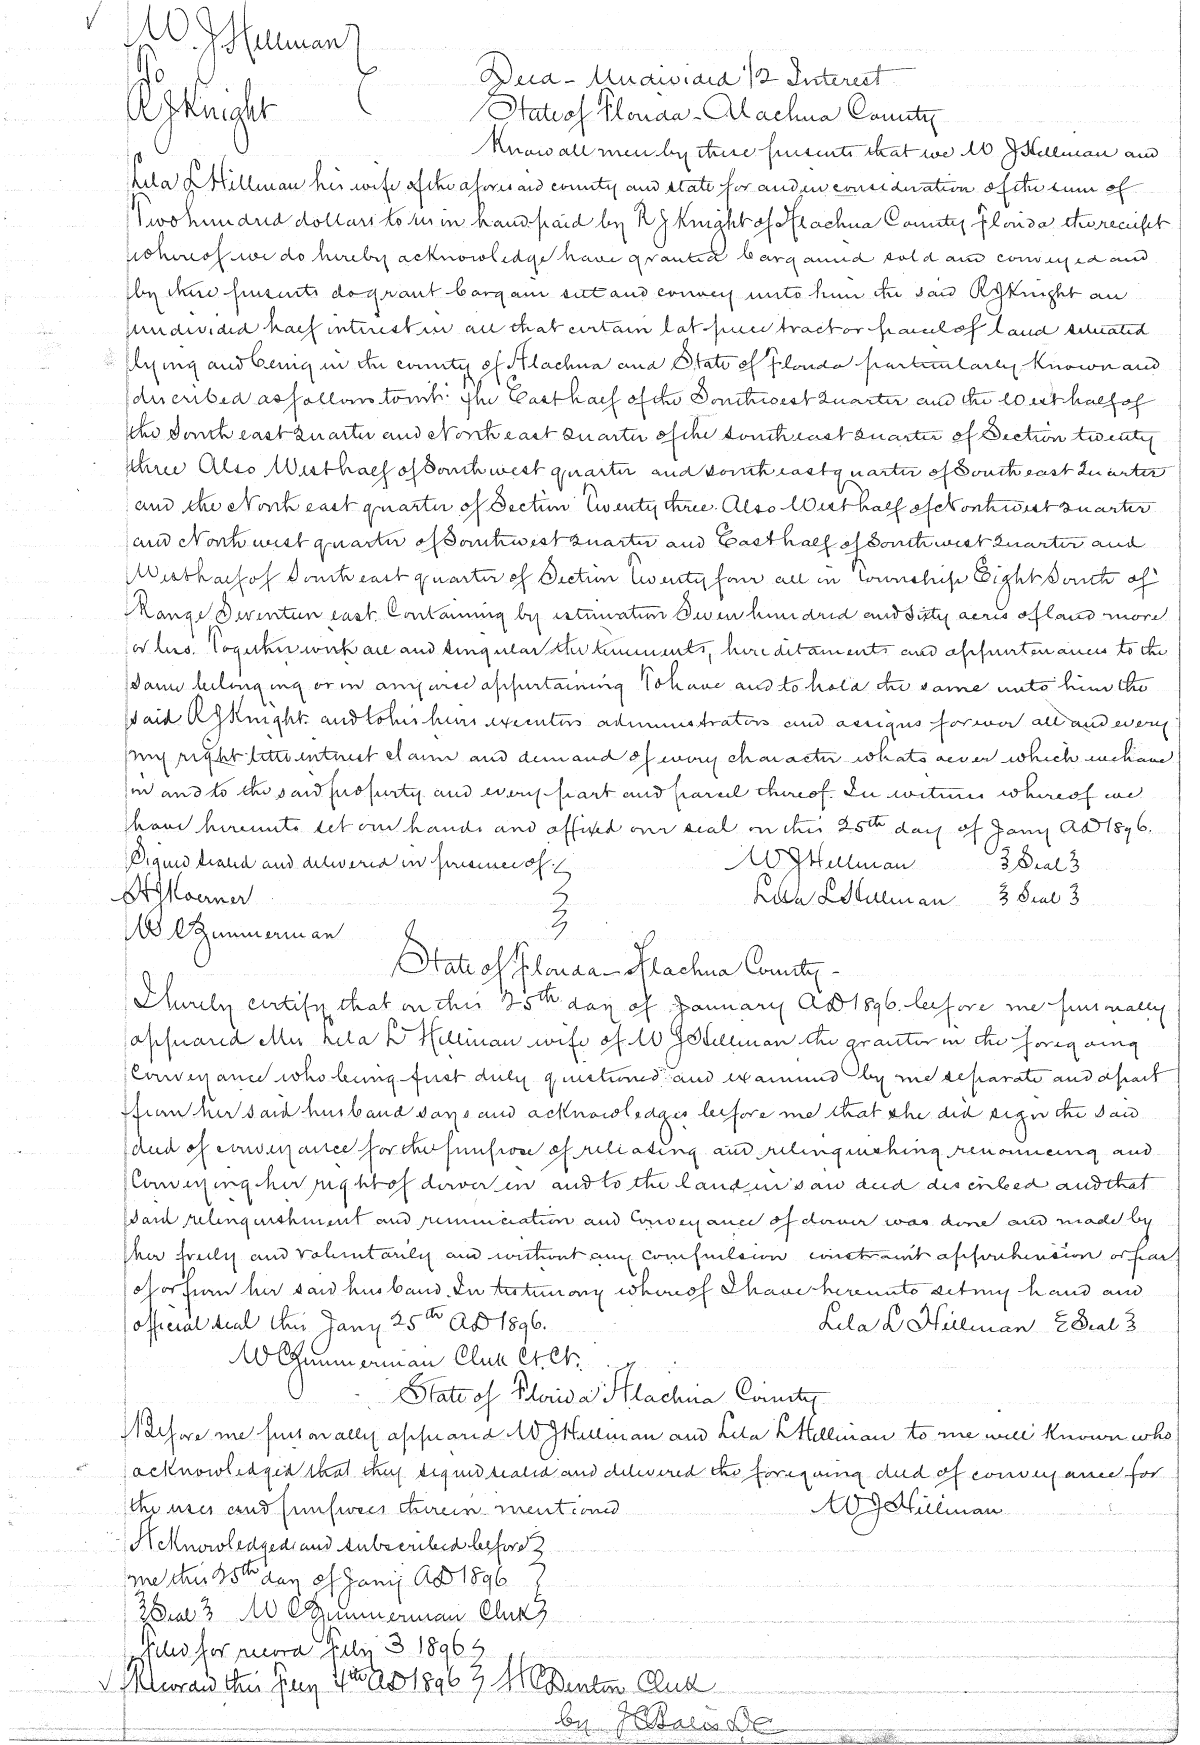 W. J Hillman
To
R J Knight
Deed - Undivided 1/2 Interest
State of Florida - Alachua County
Know all men by these presents that we W J Hillman and
Lila L Hillman his wife of the aforesaid county and state for and in consideration of the sum of
Two hundred dollars to us in hand paid by R J Knight of Alachua County Florida the receipt
whereof we do hereby acknowledge have granted bargained sold and conveyed and
by these presents do grant bargain sell and convey unto him the said R J Knight an
undivided half interest in all that certain lot piece tract or parcel of land situated
lying and being in the county of Alachua and State of Florida particularly known and
described as follows towit: The East half of the Southwest Quarter and the West half of
the South east Quarter and North east Quarter of the south east Quarter of Section twenty
three Also West half of South west quarter and south east quarter of South east Quarter
and the North east quarter of Section Twenty three. Also West half of Northwest Quarter
and North west quarter of Southwest Quarter and East half of South west Quarter and
West half of South east quarter of Section Twenty four all in Township Eight South of
Range Seventeen east Containing by estimation Seven hundred and Sixty acres of land more
or less. Together with all and singular the tenements, hereditaments and appurtenances to the
same belonging or in anywise appertaining To have and to hold the same unto him the
said R J Knight and to his heirs executors administrators and assigns forever all and every
my right title interest claim and demand of every character whatsoever which we have
in and to the said property and every part and parcel thereof. In witness whereof we
have hereunto set our hands and affixed our seal on this 25th day of Jany AD 1896.
Signed sealed and delivered in presence of
W J Hillman Seal
H J Koerner
Lila L Hillman Seal
W C Zimmerman
State of Florida - Alachua County -
I hereby certify that on this 25th day of January AD 1896. before me personally
appeared Mrs Lila L Hillman wife of W J Hillman the grantor in the foregoing
Conveyance who being first duly questioned and examined by me separate and apart
from her said husband says and acknowledges before me that she did sign the said
deed of conveyance for the purpose of releasing and relinquishing renouncing and
Conveying her right of dower in and to the land in said deed described and that
said relinquishment and renunciation and Conveyance of dower was done and made by
her freely and voluntarily and without any compulsion constraint apprehension or fear
of or from her said husband. In testimony whereof I have hereunto set my hand and
official seal this Jany 25th AD 1896.
Lila L Hillman Seal
W C Zimmerman Clerk Ct. Ct.
State of Florida Alachua County
Before me personally appeared W J Hillman and Lila L Hillman to me well known who
acknowledged that they signed sealed and delivered the foregoing deed of conveyance for
the uses and purposes therein mentioned
W J Hillman
Acknowledged and subscribed before
me this 25th day of Jany AD 1896
Seal W C Zimmerman Clerk
Filed for record Feby 3 1896
Record this Feby 4th AD 1896 H C Denton Clerk
by